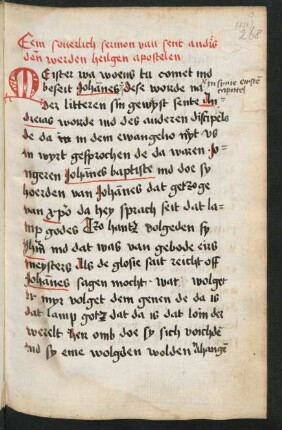 268
Eein suuerlich sermon van sent andris
den werden heilgen apostelen
Meister wa woens tu comet mo
beseit Johānes dese worde na
in syme eirsten
capittel
der litteren sin gewyst sente An=
dreias worde ind des anderen discipels
de da in dem ewangeho nyt us
in wyrt gesprochen de da waren Jo=
ngeren Johānes baptiste ind doe sy
hoerden van Johānes dat getzoge
van xpo da hey sprach seit dat la=
mp godes Tzo hantz volgeden sy
Jhm ind dat was van gebode eirs
meysters Als de glosie sait reicht off
Johānes sagen mocht wat volget
ir myr volget dem genen de da is
dat lamp gotz dat da is dat loin der
werelt Her omb doe sy sich voichde
ind sy eme wolgden wolden Ahange